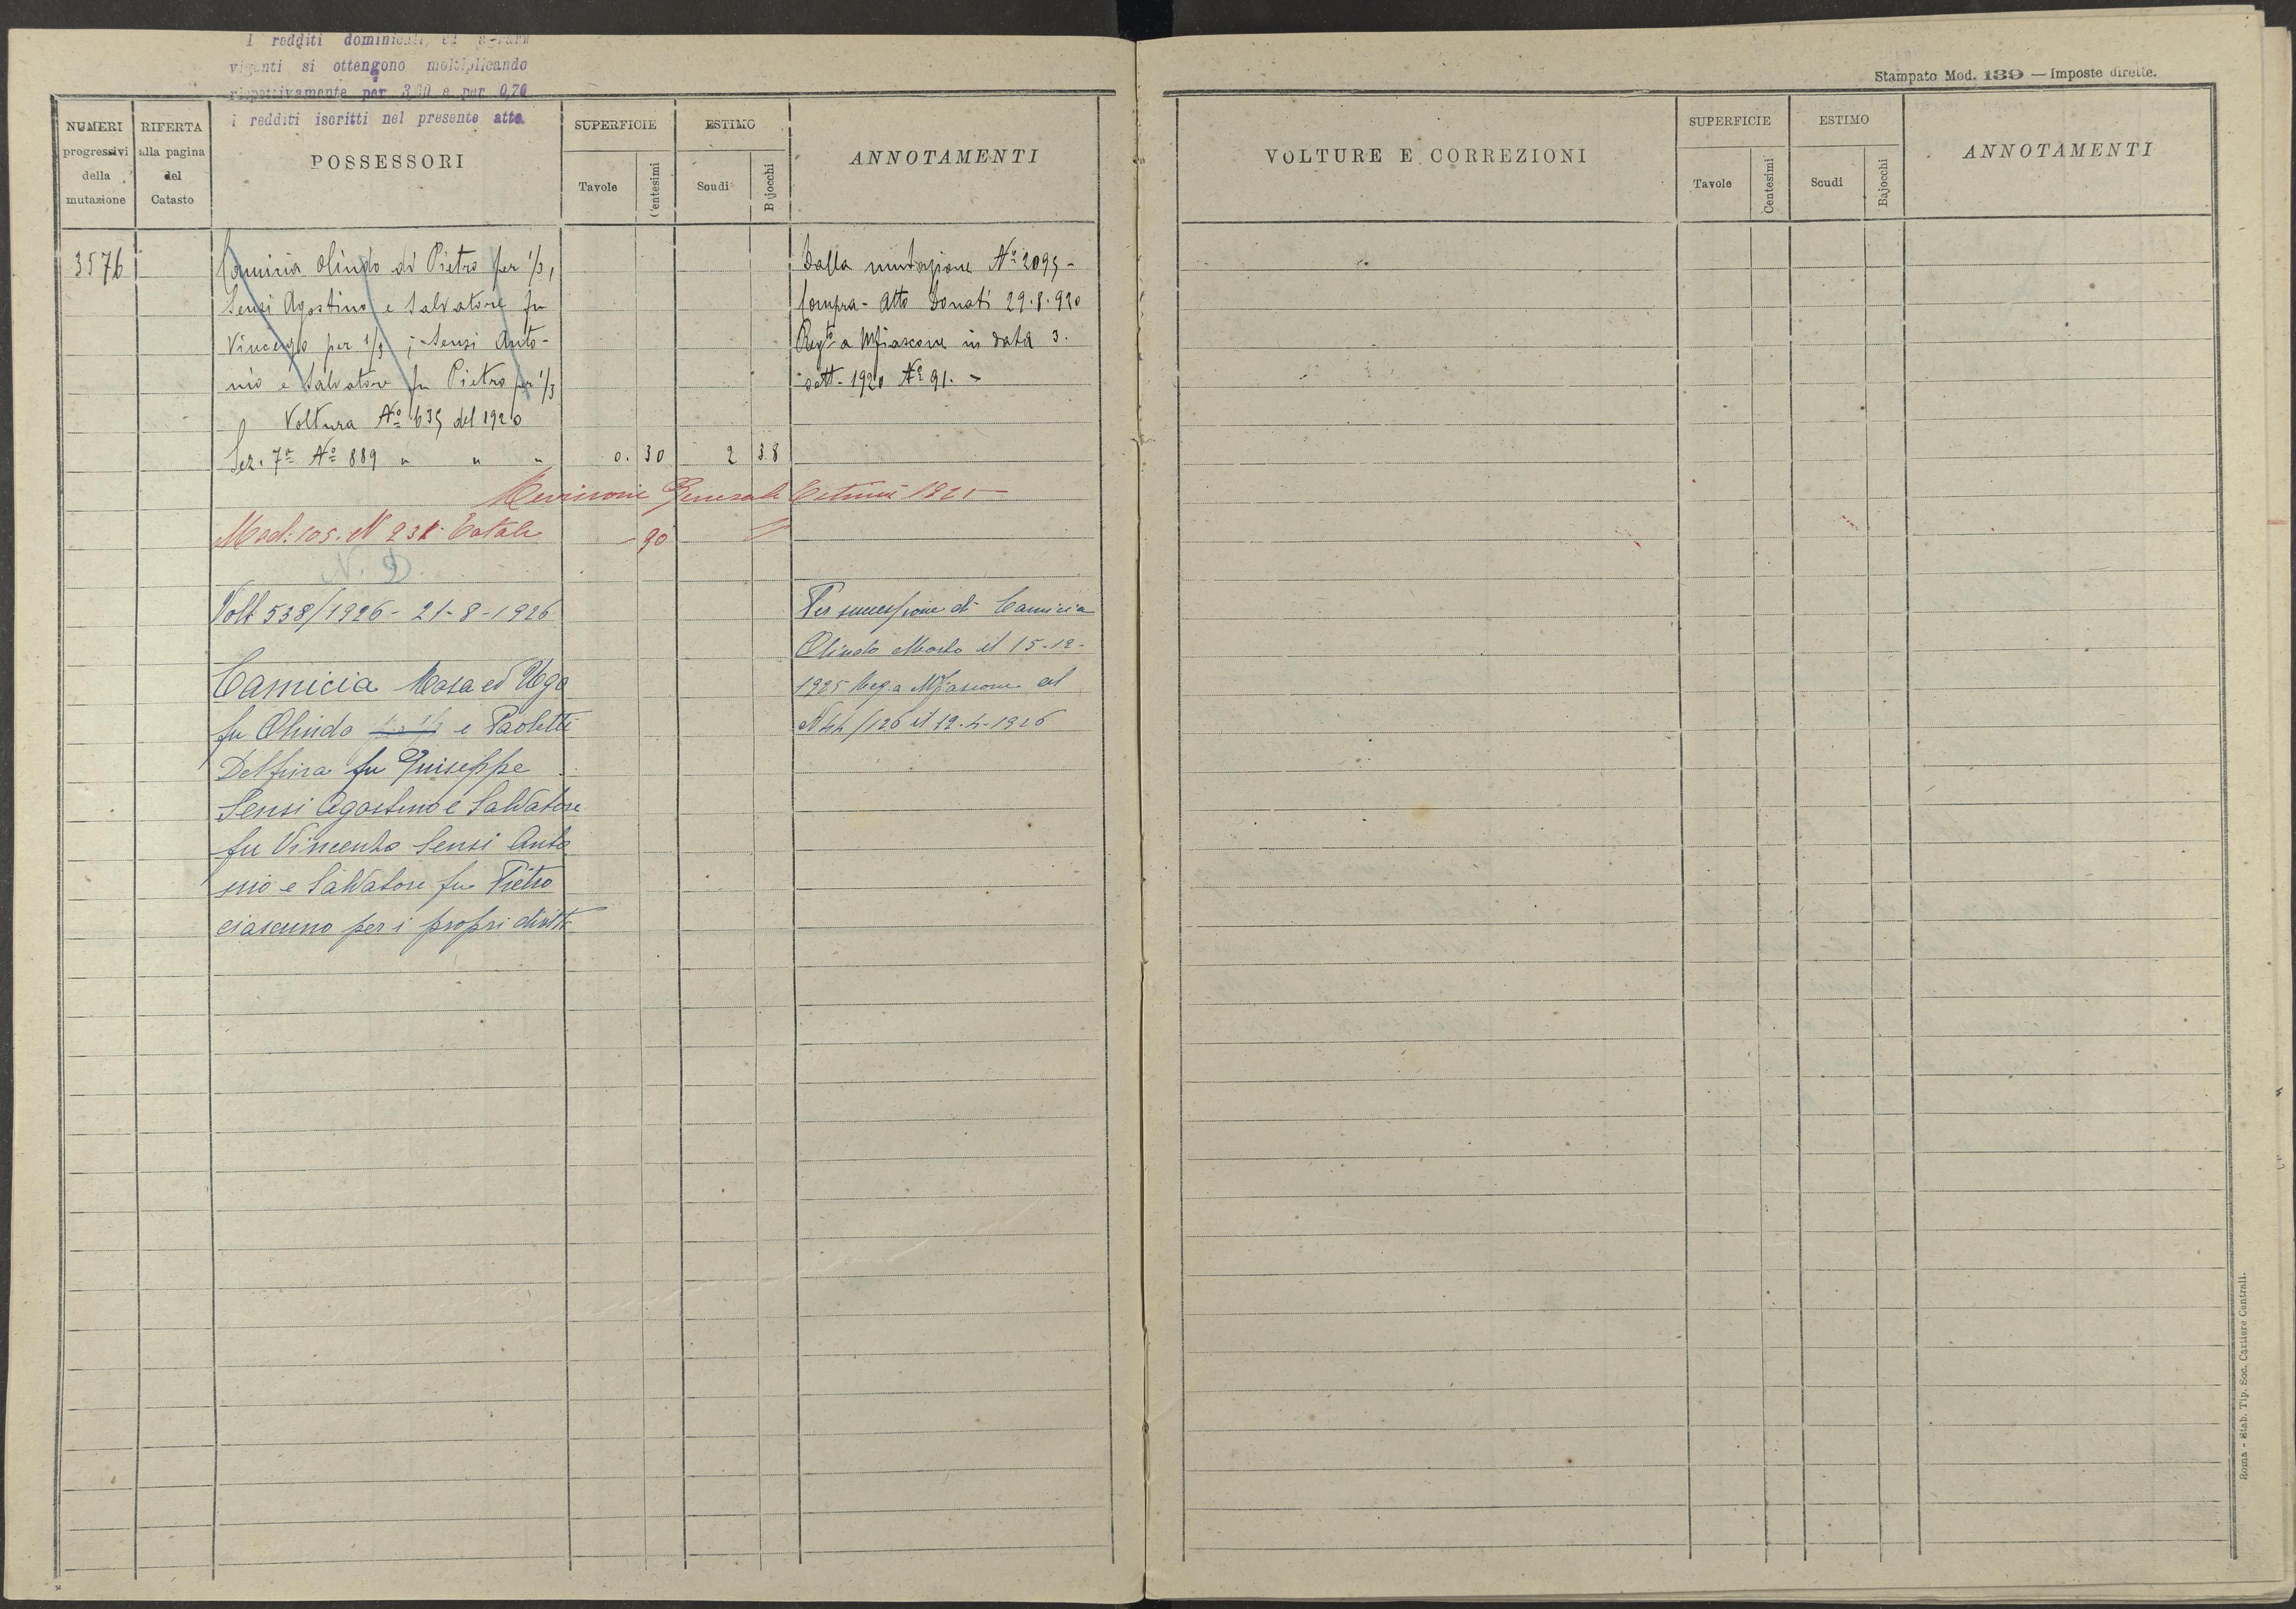 I redditi dominicali, ed agrari
vigenti si ottengono moltiplicando
rispettivamente per 3,20 e per 0,70
i redditi iscritti nel presente atto.
Stampato Mod. 139 — Imposte dirette.
NUMERI progressivi della mutazione
RIFERTA alla pagina del Catasto
POSSESSORI
SUPERFICIE
Tavole
Centesimi
ESTIMO
Scudi
Bajocchi
ANNOTAMENTI
3576
Camicia Olindo di Pietro per 1/3,
Sensi Agostino e Salvatore fu
Vincenzo per 1/3; Sensi Anto-
nio e Salvatore fu Pietro per 1/3
Voltura Nº 635 del 1920
Sez. 7ª Nº 889 " " " 0. 30 2 38
Dalla mutazione Nº 2095 -
Compra - Atto Donati 29.8.920
Regto a Mfiascone in data 3.
sett. 1920 Nº 91. -
Revisione Generale Estimi 1921
Mod: 105. N 231 Totale - 90
N. D.
Volt 538/1926 - 21-8-1926
Camicia Rosa ed Ugo
fu Olindo e Paoletti
Delfina fu Giuseppe
Sensi Agostino e Salvatore
fu Vincenzo Sensi Anto
nio e Salvatore fu Pietro
ciascuno per i propri diritti
Per successione di Camicia
Olindo Morto il 15-12-
1925 Reg. a Mfiascone al
N 44/126 il 12-4-1926
VOLTURE E CORREZIONI
SUPERFICIE
Tavole
Centesimi
ESTIMO
Scudi
Bajocchi
ANNOTAMENTI
Roma - Stab. Tip. Soc. Cartiere Centrali.